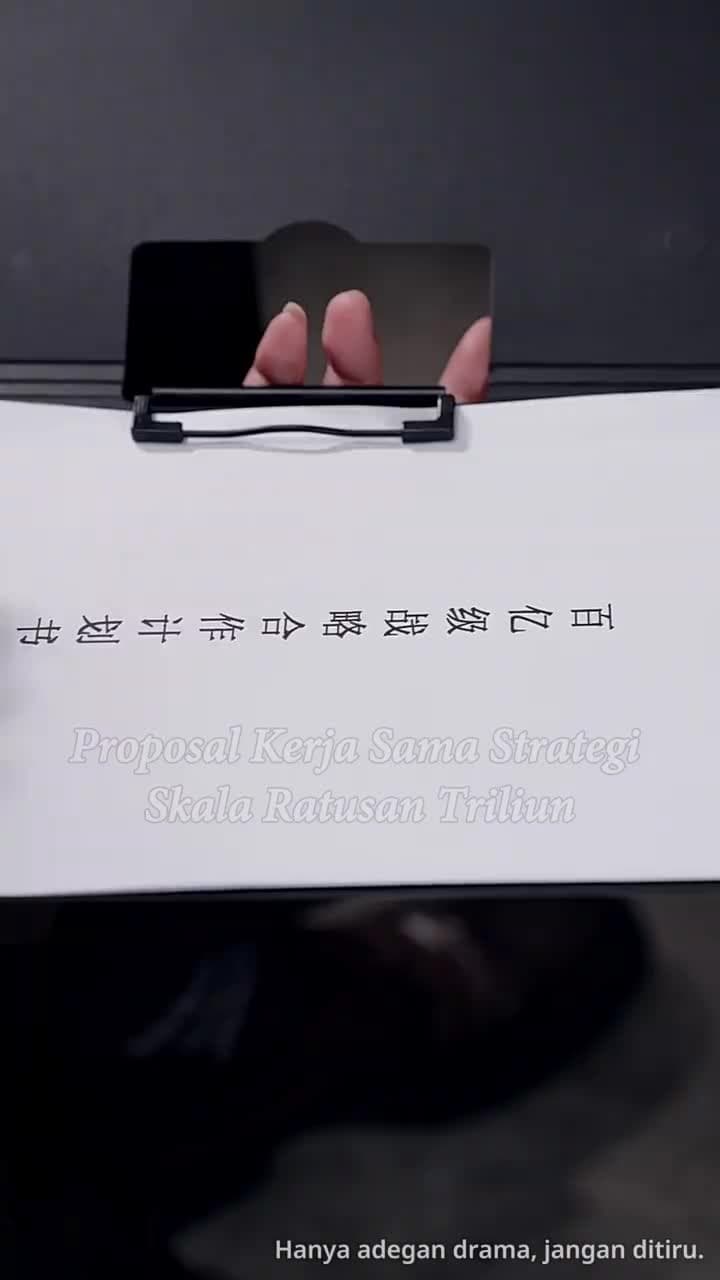 百亿级战略合作计划书
Proposal Kerja Sama Strategi
Skala Ratusan Triliun
Hanya adegan drama, jangan ditiru.